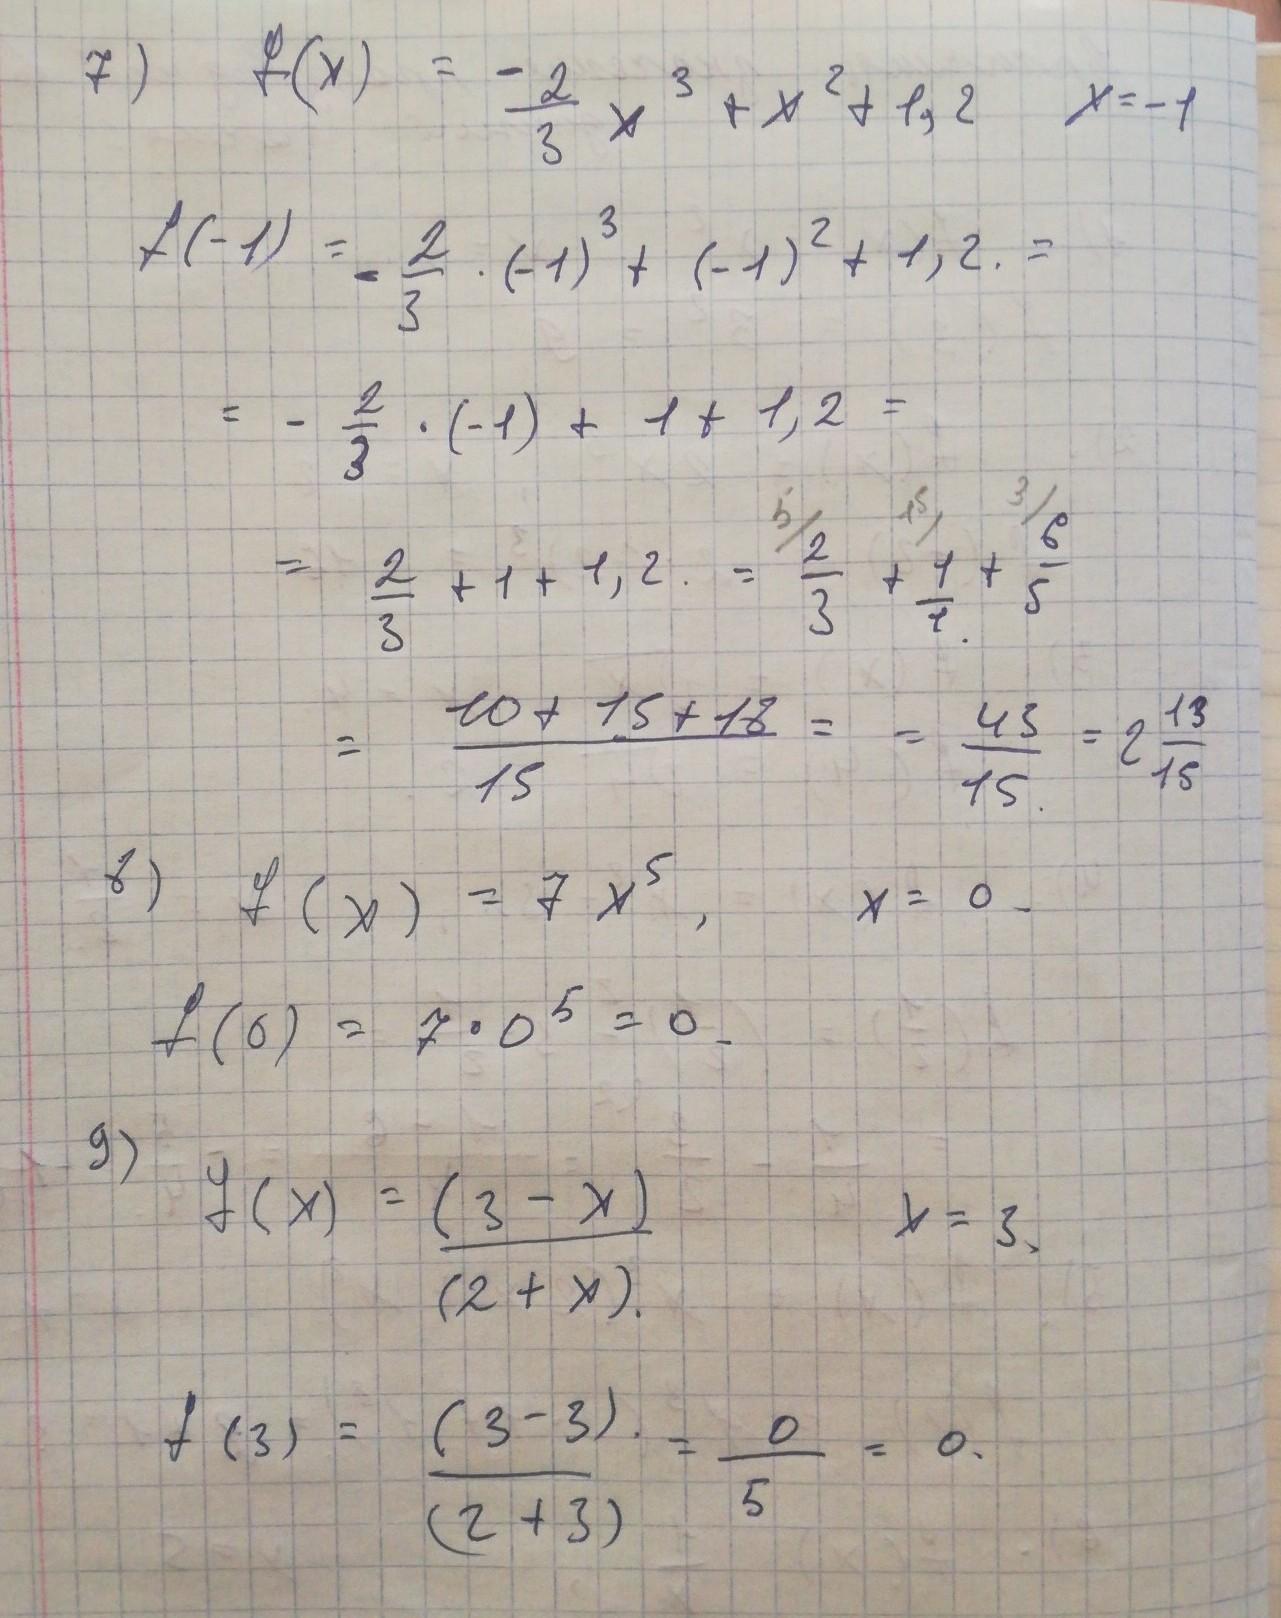 7) f(x) = -2/3 x³ + x² + 1,2 x = -1
f(-1) = - 2/3 · (-1)³ + (-1)² + 1,2. =
= - 2/3 · (-1) + 1 + 1,2 =
= 2/3 + 1 + 1,2. = ⁵/ 2/3 + ¹⁵/ 1/1. + ³/ 6/5
= 10 + 15 + 18 / 15 = = 43/15. = 2 13/15
8) f(x) = 7x⁵, x = 0.
f(0) = 7·0⁵ = 0.
9) f(x) = (3 - x) / (2 + x). x = 3.
f(3) = (3 - 3). / (2 + 3) = 0/5 = 0.